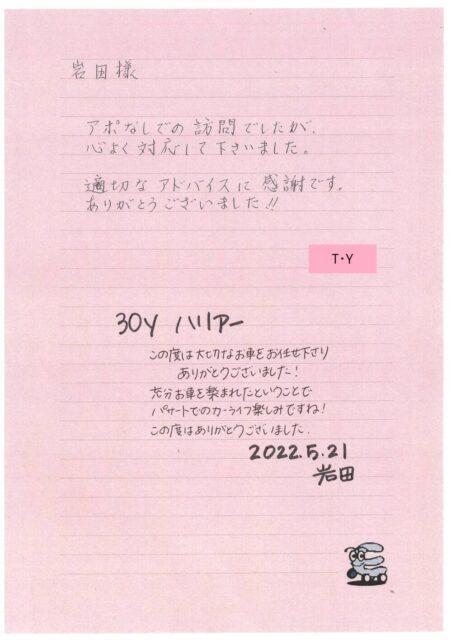 岩田様
アポなしでの訪問でしたが、
心よく対応して下さいました。
適切なアドバイスに感謝です。
ありがとうございました!!
T・Y
30Y ハリアー
この度は大切なお車をお任せ下さり
ありがとうございました!
お車を
パサートでのカーライフ楽しみですね!
この度はありがとうございました.
2022.5.21
岩田